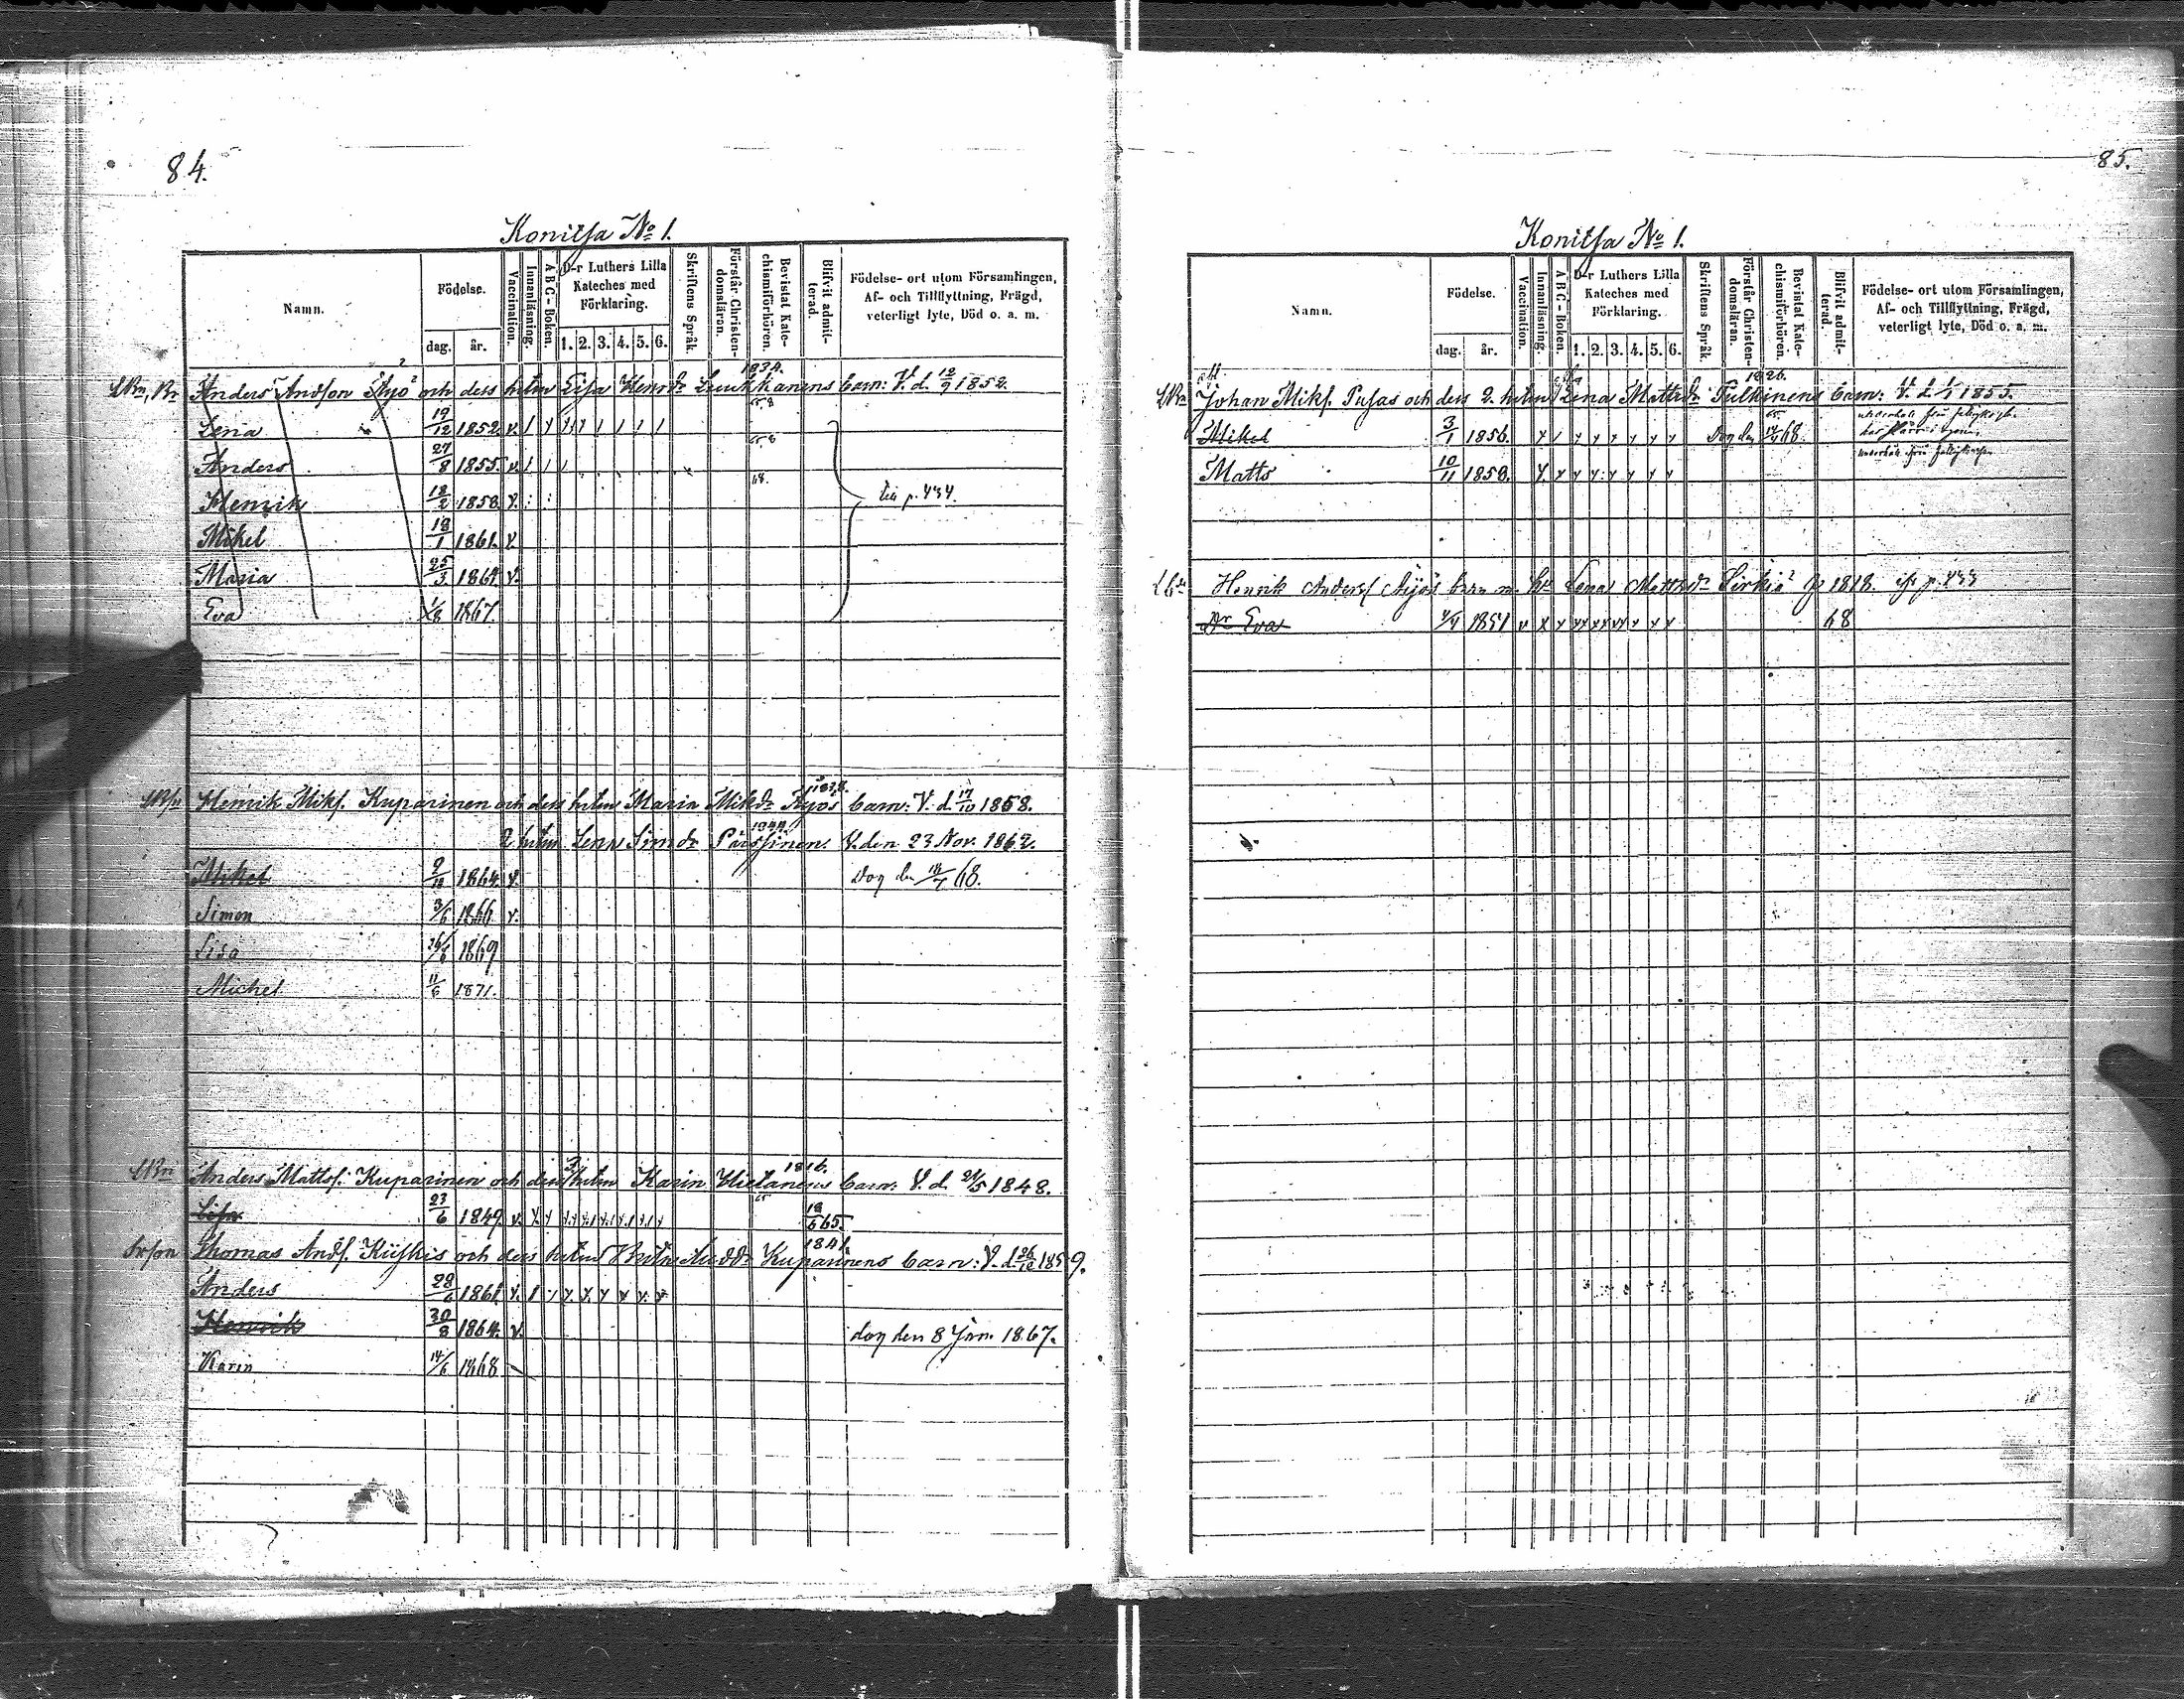 84.
Konitsa No 1.
Namn.
Födelse.
dag.
år.
Vaccination.
Innanläsning.
A B C - Boken.
D-r Luthers Lilla
Kateches med
Förklaring.
1. 2. 3. 4. 5. 6.
Skriftens Språk.
Förstår Christen-
domsläran.
Bevistat Kate-
chismiförhören.
Blifvit admit-
terad.
Födelse- ort utom Församlingen,
Af- och Tillflyttning, Frägd,
veterligt lyte, Död o. a. m.
1834.
Anders Andson Äyö och dess hstru Lisa Henrdr Luukkanens barn: V. d. 12/9 1852.
Lena 19/12 1852 v.
Anders 27/8 1855 v.
Henrik 18/2 1858 v.
till p. 434.
Mikel 18/1 1861. v.
Maria 25/3 1864 v.
Eva 1/8 1867.
Henrik Miks. Kuparinen och dess hstru Maria Mikdr Äyös barn: V. d. 17/10 1858.
2 hstru Lena Simdr Pärssinen. V. den 23 Nov. 1862.
Mikel 9/10 1864 v. Dog den 14/4 68.
Simon 3/6 1866 v.
Lisa 1869
Michel 11/6 1871.
1816.
Anders Matts. Kuparinen och dess 3 hstru Karin Hietanens barn: V. d. 24/5 1848.
Lisa 23/6 1849 v. 18/6 65.
1841.
Thomas Ands. Kiiskis och dess hstru Kuparinens barn: V. d. 26/12 1859.
Anders 28/6 1861. v.
Henrik 30/8 1864. v. dog den 8 Jan. 1867.
Karin 14/6 1868
85.
Konitsa No 1.
Namn.
Födelse.
dag.
år.
Vaccination.
Innanläsning.
A B C - Boken.
D-r Luthers Lilla
Kateches med
Förklaring.
1. 2. 3. 4. 5. 6.
Skriftens Språk.
Förstår Christen-
domsläran.
Bevistat Kate-
chismiförhören.
Blifvit admit-
terad.
Födelse- ort utom Församlingen,
Af- och Tillflyttning, Frägd,
veterligt lyte, Död o. a. m.
1826.
Johan Miks. Pusas och dess 2. hstru Lena Mattsdr Tulkinens barn: V. d. 1/1 1855.
Mikel 3/1 1856. Dog den 14/4 68.
Matts 10/11 1858.
Henrik Anders Äijös barn m. hu Lena Mattsdr Sirkiä f 1818. p. 433
Dr Eva 4/4 1851 v 68